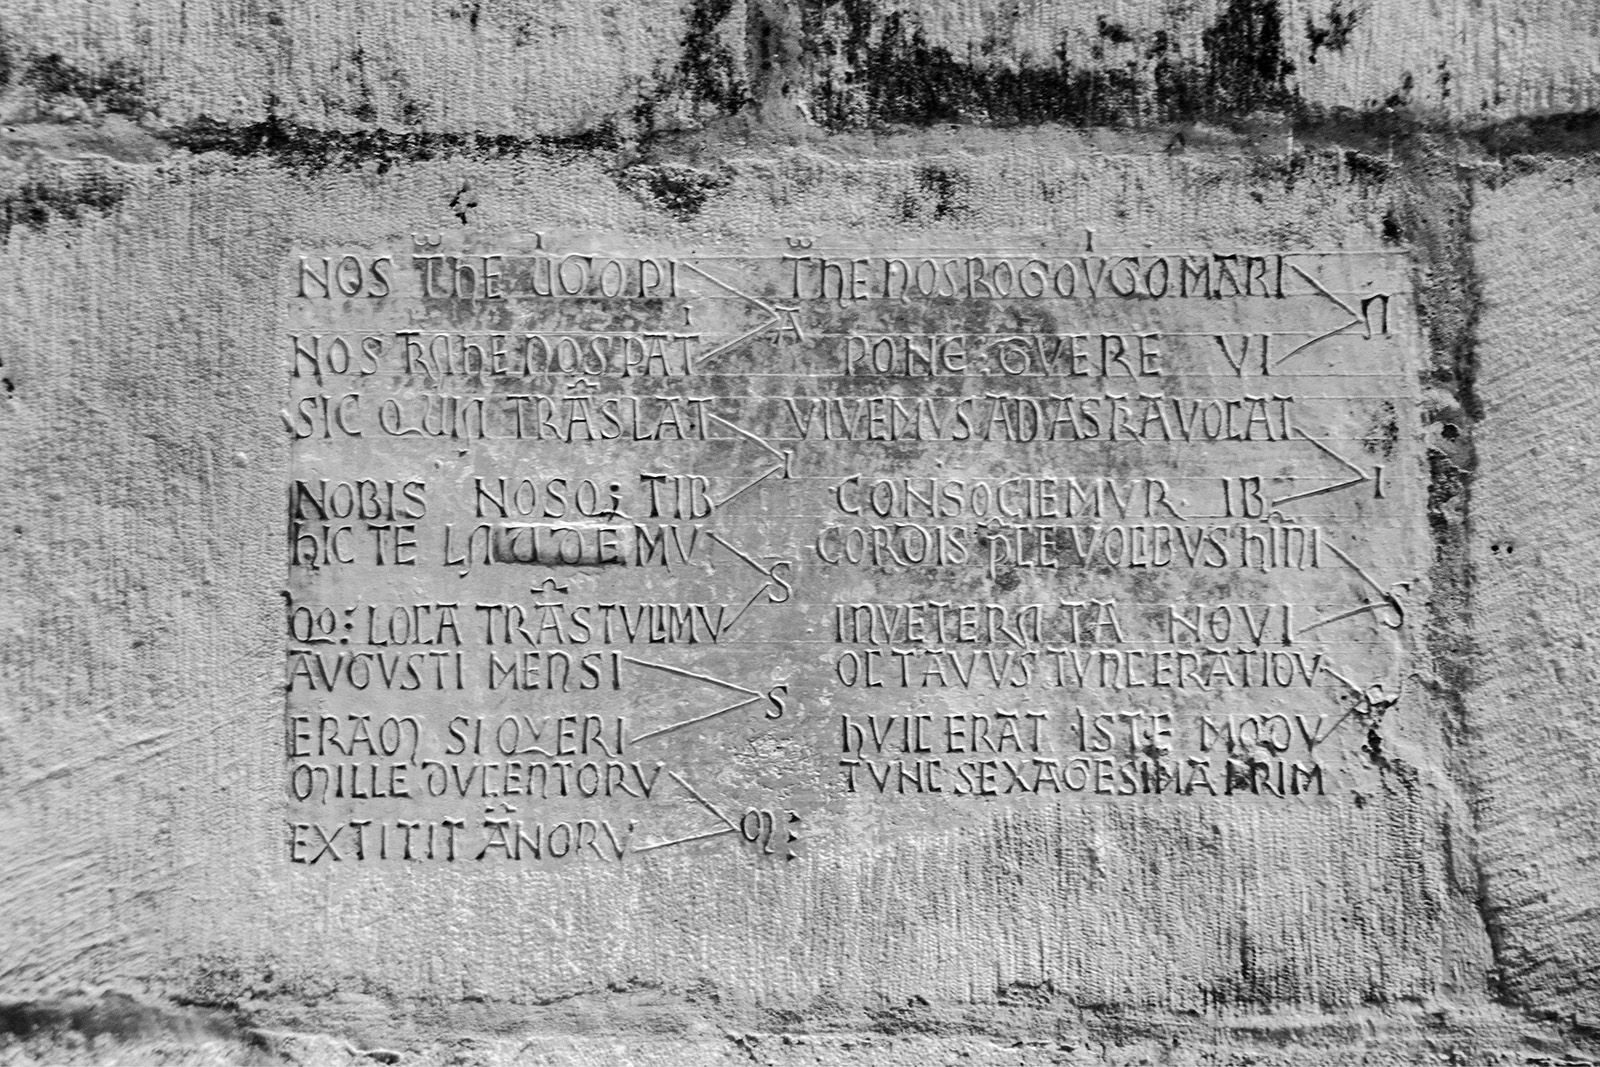 NOS THE UGO PI THE NOS ROGO VGO MARI
A N
NOS TRAHE NOS PAT PONE GVERE VI
SIC QUIA TRASLAT VIVEMVS AD ASRA VOCAT
I I
NOBIS NOSQ; TIB CONSOCIEMVR IB
HIC TE LAUDEMU CORDIS PLE VOCIBVS HINI
S S
LOCA TRASTVLIMV INVETERATA NOVI
AVGVSTI MENSI OCTAVVS TVNC ERAT IDV
S S
ERAM SI QVERI HVIC ERAT ISTE MODV
MILLE DVCENTORV TVNC SEXAGESIMA PRIM
M:
EXTITIT ANORV